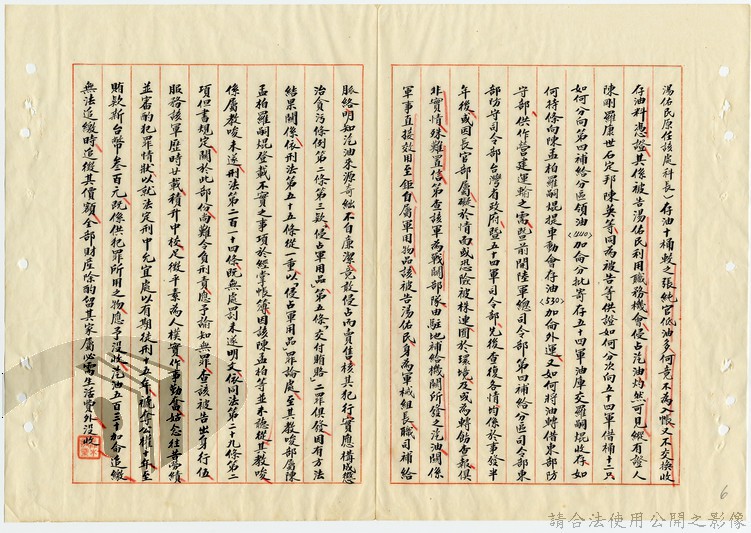 湯佑民原任該處科長）存油十桶較之張純官佃油多何竟不為入帳又不交接收
存油料憑證其係被告湯佑民利用職務機會侵占汽油灼然可見縱有證人
陳剛羅康世石定邦陳英等同為被告等供證如何分次向五十四軍借桶十二只
如何分向第四補給分區領油〈1140〉加侖分批寄存五十四軍油庫交羅嗣焜收存如
何持條向陳孟柏羅嗣焜提車動會存油〈530〉加侖外運又如何將油轉借東部防
守部供作營建運輸之需暨前聞陸軍總司令部第四補給分區司令部東
部防守司令部台灣省政府暨五十四軍司令部先後查復各情均係於事發半
年後或因長官部屬礙於情面或恐險被株連囿於環境及或為轉飭查報俱
非實情殊難置信第查該軍為戰鬪部隊由駐地補給機關所發之汽油關係
軍事直接效用至鉅自屬軍用物品該被告湯佑民身為軍械組長職司補給
脈絡明知汽油來源奇絀不自廉潔竟敢侵占而賣售核其犯行實應構成懲
治貪污條例第二條第三款「侵占軍用品」第五條「交付賄賂」二罪俱發因有方法
結果關係依刑法第五十五條從一重以「侵占軍用品」罪論處至其教唆部屬陳
孟柏羅嗣焜登載不實之事項於經掌帳簿因該陳孟柏等並未聽從其教唆
係屬教唆未遂刑法第二百一十四條既無處罰未遂明文依同法第二十九條第二
項但書規定關於此部份尚難令負刑責應予諭知無罪查該被告出身行伍
服務該軍歷時廿載積升中校足徵平素為人樸實作事勤奮姑念往昔勞績
並審酌犯罪情狀以就法定刑中允宜處以有期徒刑十五年褫奪公權十年至
賄款新台幣叁百元既係供犯罪所用之物應予沒收汽油五百三十加侖追繳
無法追繳時追徵其價額全部財産除酌留其家屬必需生活費外沒收
6
請合法使用公開之影像